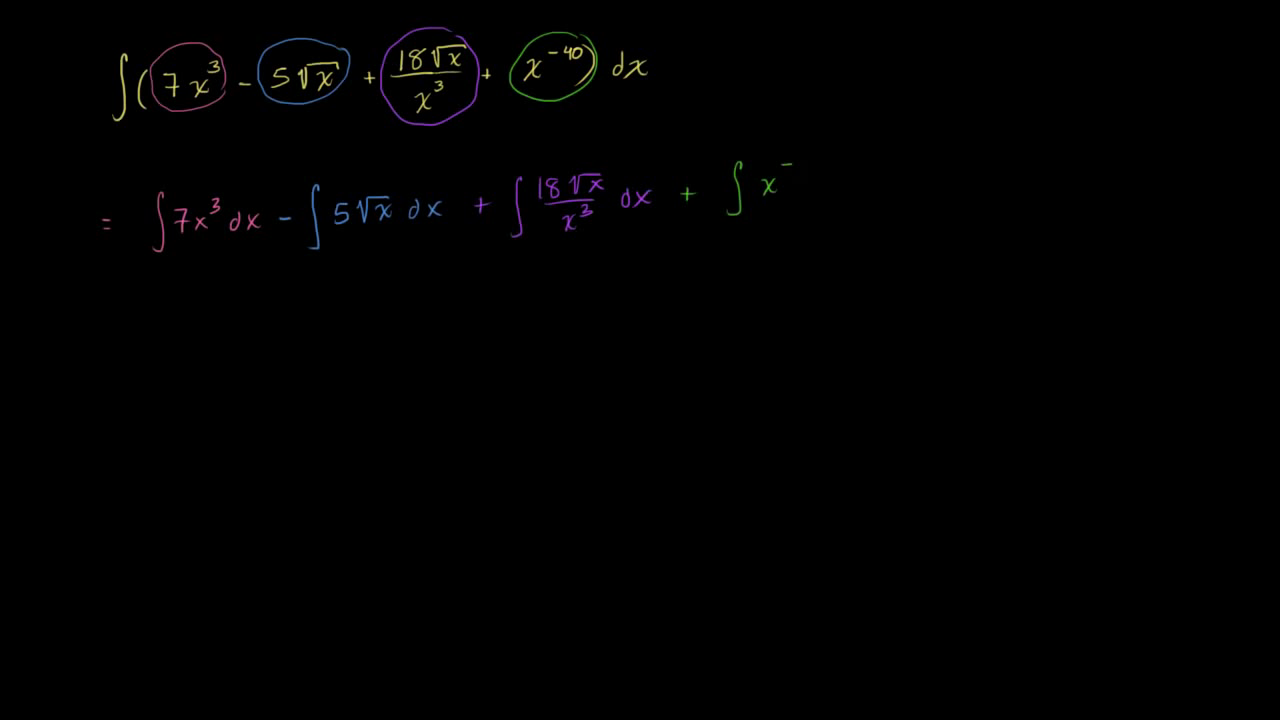 ∫(7x³ - 5√x + 18√x/x³ + x⁻⁴⁰) dx
= ∫7x³ dx - ∫5√x dx + ∫18√x/x³ dx + ∫x⁻